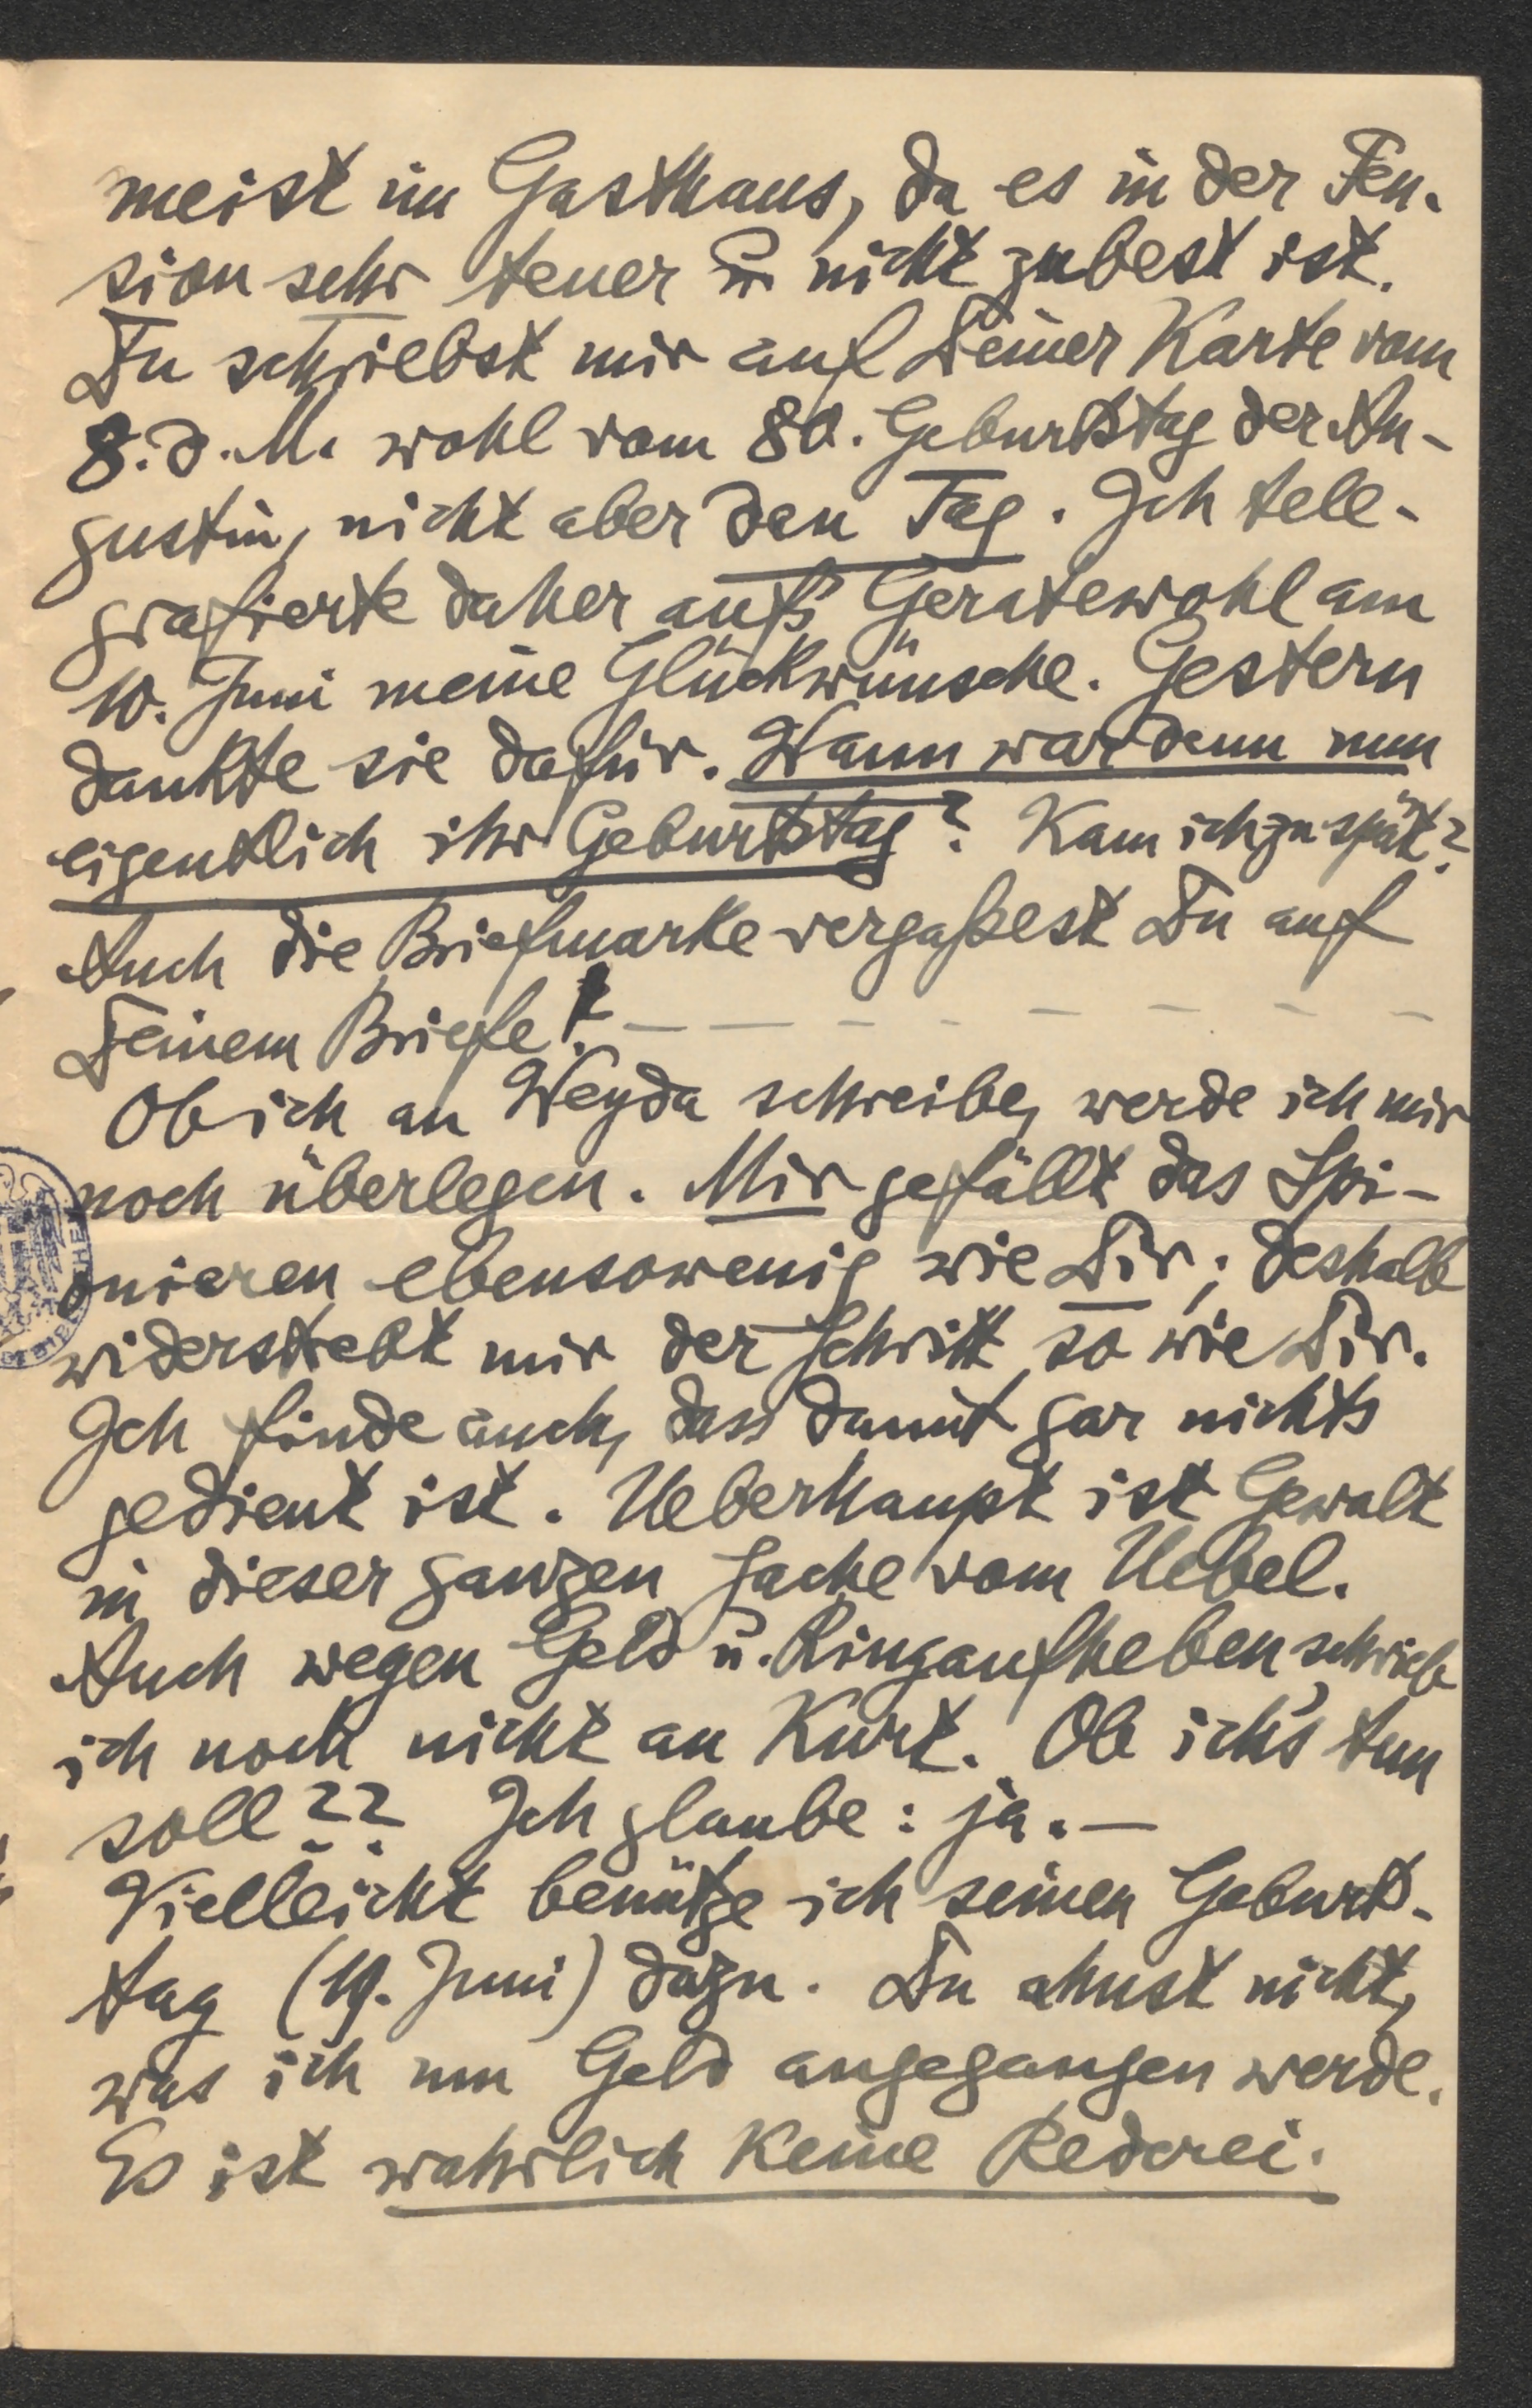 meist im Gasthaus, da es in der Pen-
sion sehr teuer u. nicht zubest ist.
Du schriebst mir auf Deiner Karte vom
8. d. M. wohl vom 80. Geburtstag der Au-
gustin, nicht aber den Tag. Ich tele-
grafierte daher aufs Geratewohl am
10. Juni meine Glückwünsche. Gestern
dankte sie dafür. Wann war denn nun
eigentlich ihr Geburtstag? Kam ich zu spät?
Auch die Briefmarke vergaßest Du auf
Deinem Briefe! — — — — — — — —
Ob ich an Weyda schreibe, werde ich mir
noch überlegen. Mir gefällt das Spi-
onieren ebensowenig wie Dir; deshalb
widerstrebt mir der Schritt so wie Dir.
Ich finde auch, dass damit gar nichts
gedient ist. Ueberhaupt ist Gewalt
in dieser ganzen Sache vom Uebel.
Auch wegen Geld u. Ringaufheben schrieb
ich noch nicht an Kurt. Ob ich's tun
soll?? Ich glaube: ja. —
Vielleicht benütze ich seinen Geburts-
tag (19. Juni) dazu. Du ahnst nicht,
was ich um Geld angegangen werde.
Es ist wahrlich keine Rederei.